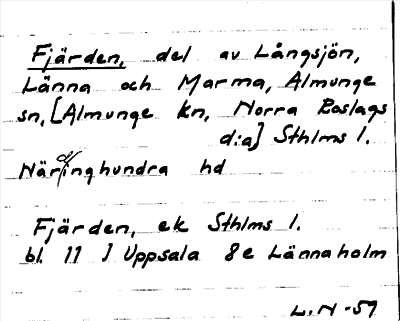 Fjärden, del av Långsjön,
Länna och Marma, Almunge
sn, [Almunge kn, Norra Roslags
d:a] Sthlms l.
Närdinghundra hd
Fjärden, ek Sthlms l.
bl. 11 I Uppsala 8e Lännaholm
L.N -59